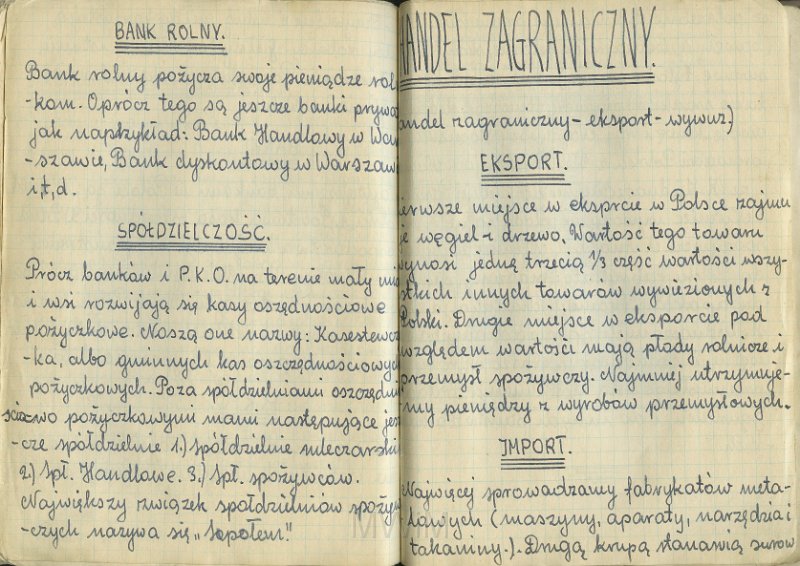 BANK ROLNY.
Bank rolny pożycza swoje pieniądze rol
-kom. Oprócz tego są jeszcze banki prywa
jak naprzykład: Bank Handlowy w War
-szawie, Bank dyskontowy w Warszaw
i,t,d.
SPÓŁDZIELCZOŚĆ.
Prócz banków i P.K.O. na terenie mały mia
i wsi rozwijają się kasy oszędnościowe
pożyczkowe. Noszą one nazwy: Kasestewcz
-ka, albo gminnych kas oszczędnościowych
pożyczkowych. Poza spółdzielniami oszczędno
ścio-wo pożyczkowymi mami następujące jes
-cze spółdzielnie 1.) spółdzielnie mleczarski
2.) Spł. Handlowe. 3.) Spł. spożywców.
Największy związek spółdzielniów spożyw
-czych nazywa się „Sopołem"
HANDEL ZAGRANICZNY.
andel zagraniczny – eksport – wywuz)
EKSPORT.
ierwsze miejsce w eksprcie w Polsce zajmu
je węgiel i drzewo. Wartość tego towaru
wynosi jedną trzecią 1/3 część wartości wszy-
stkich innych towarów wywiezionych z
Polski. Drugie miejsce w eksporcie pod
względem wartości mają płady rolnicze i
przemysł spożywczy. Najmniej utrzymuje-
my pieniędzy z wyrobów przemysłowych.
IMPORT.
Najwięcej sprowadzamy fabrykatów meta-
lawych (maszyny, aparaty, narzędzia i
takaniny.). Drugą krupą stanawią surow